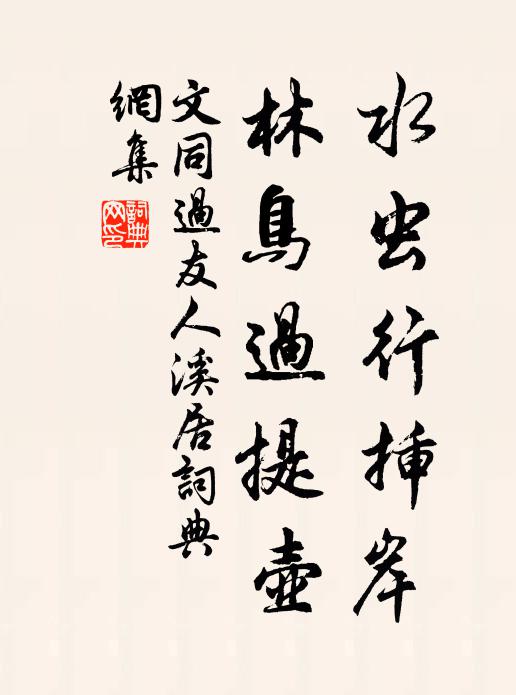 水虫行挿岸
林鳥過提壺
文同過友人溪居詞典
網集
詞典
网印